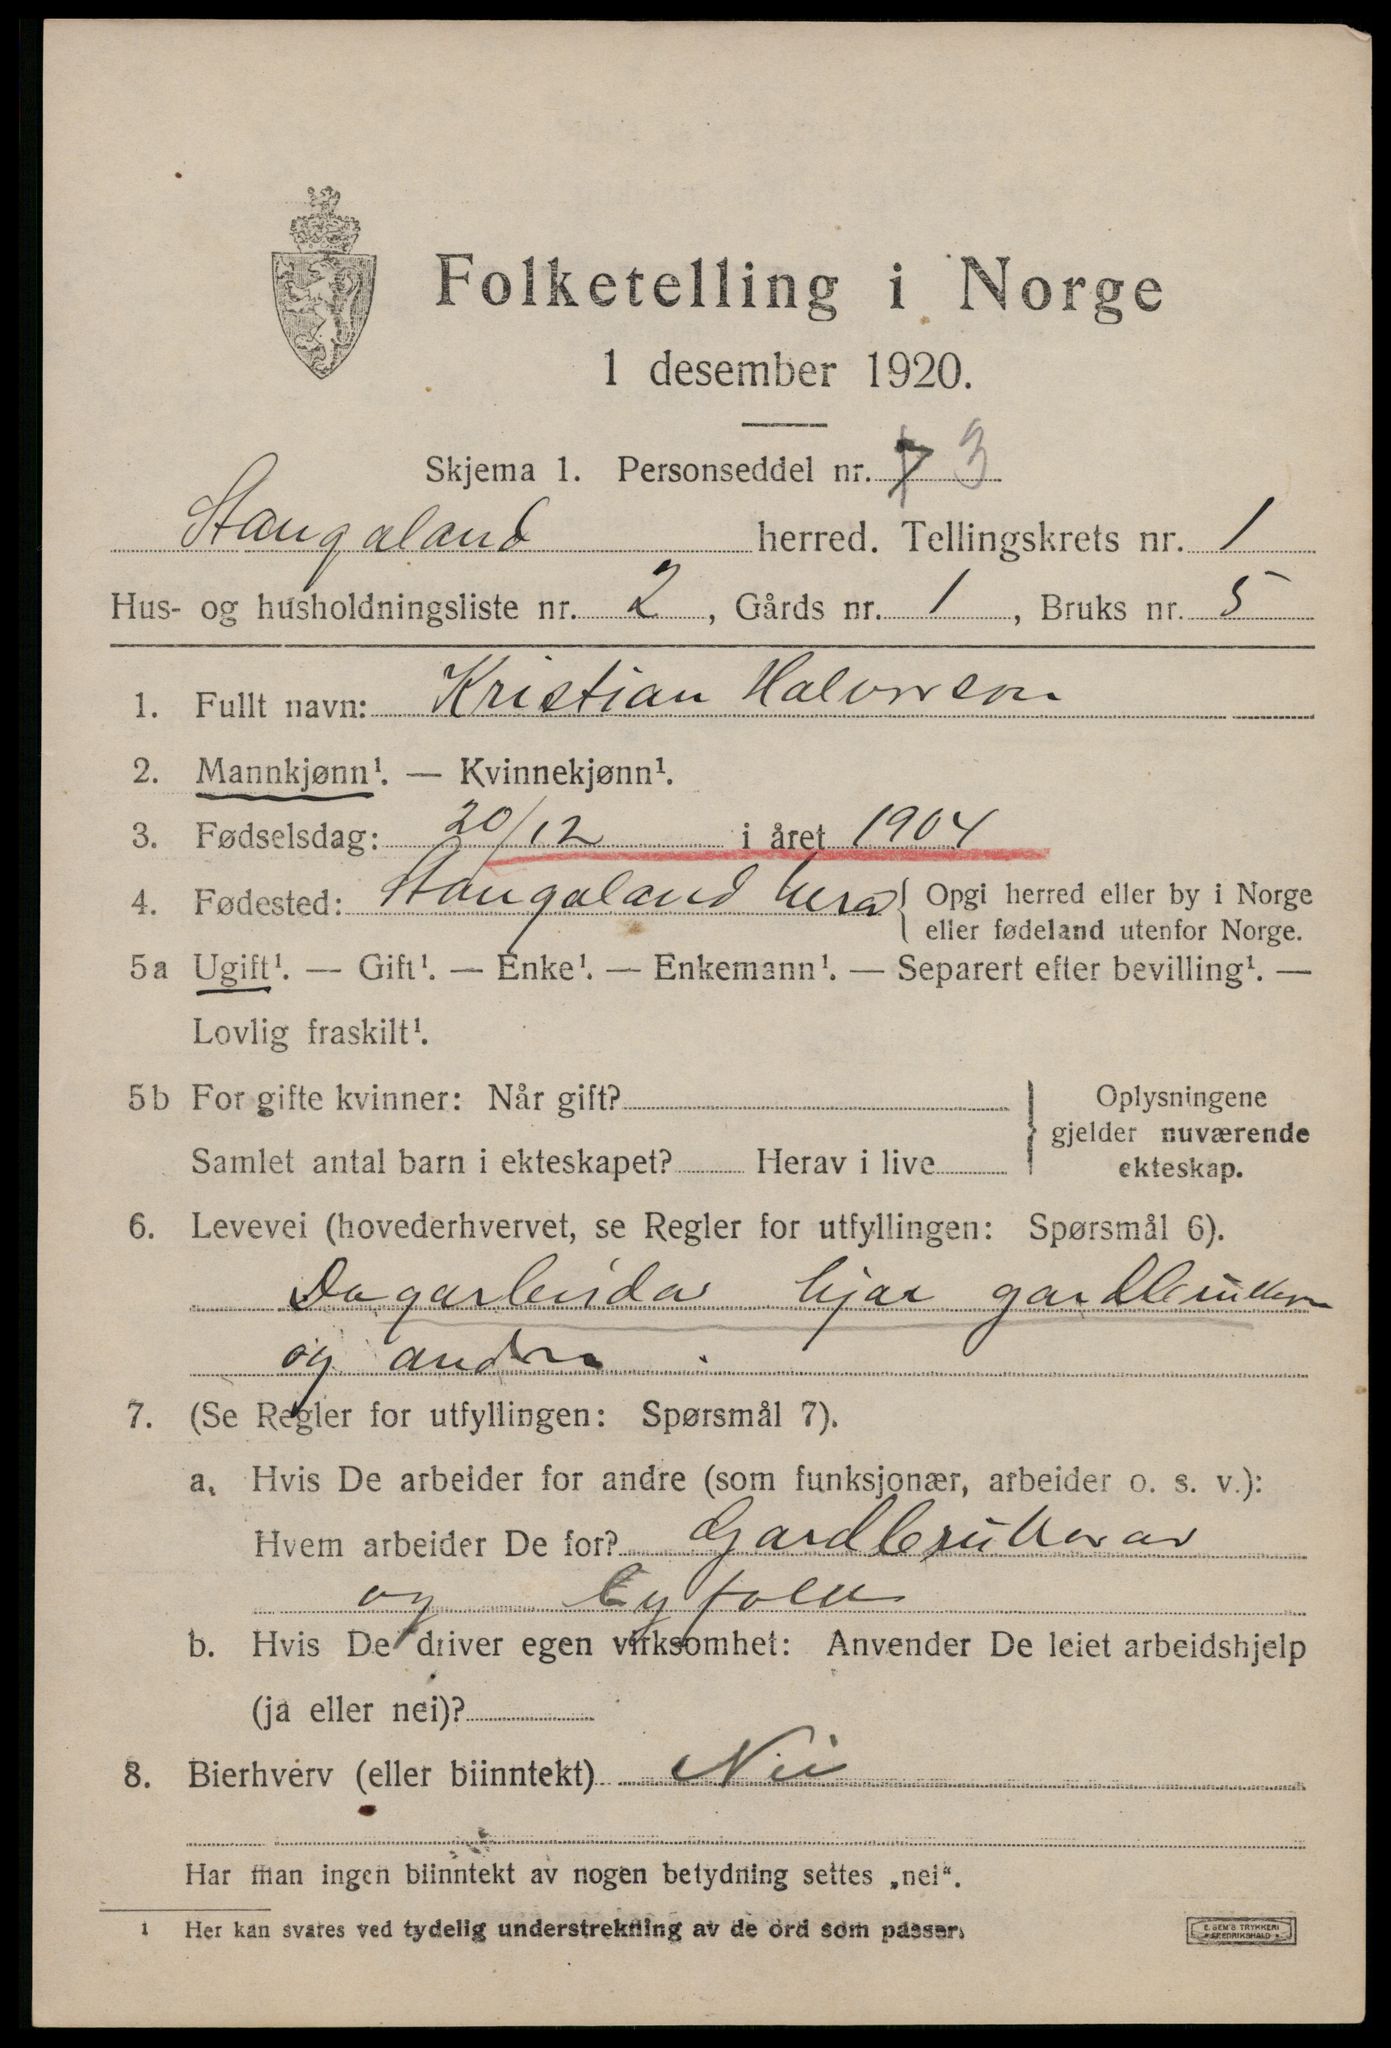 Folketelling i Norge
1 desember 1920.
Skjema 1. Personseddel nr. 7 3
Stangaland herred. Tellingskrets nr. 1
Hus- og husholdningsliste nr. 2, Gårds nr. 1, Bruks nr. 5
1. Fullt navn: Kristian Halvorsen
2. Mannkjønn¹. — Kvinnekjønn¹.
3. Fødselsdag: 20/12 i året 1904
4. Fødested: Stangaland herad { Opgi herred eller by i Norge
eller fødeland utenfor Norge.
5a Ugift¹. — Gift¹. — Enke¹. — Enkemann¹. — Separert efter bevilling¹. —
Lovlig fraskilt¹.
5b For gifte kvinner: Når gift?
Samlet antal barn i ekteskapet? Herav i live
} Oplysningene
gjelder nuværende
ekteskap.
6. Levevei (hovederhvervet, se Regler for utfyllingen: Spørsmål 6).
Dagarbeidar hjaa gardbrukar
og andre.
7. (Se Regler for utfyllingen: Spørsmål 7).
a. Hvis De arbeider for andre (som funksjonær, arbeider o. s. v.):
Hvem arbeider De for? Gardbrukarar
og byfolk
b. Hvis De driver egen virksomhet: Anvender De leiet arbeidshjelp
(ja eller nei)?
8. Bierhverv (eller biinntekt) Nei
Har man ingen biinntekt av nogen betydning settes „nei“.
1 Her kan svares ved tydelig understrekning av de ord som passer.
E. SEM'S TRYKKERI
FREDRIKSHALD